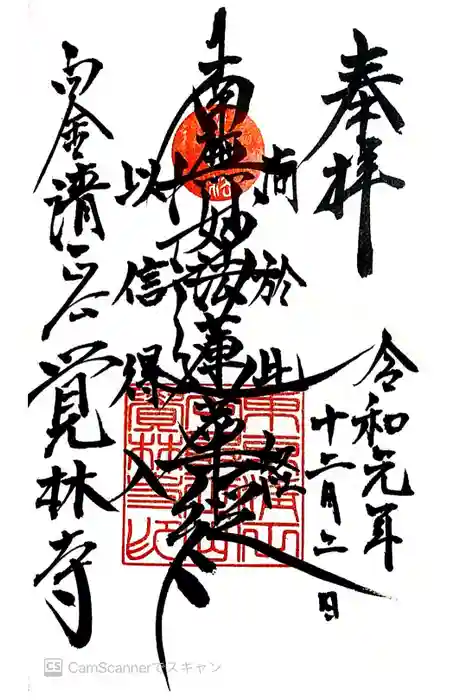 奉拝
令和元年
十二月二日
尚於此経
南無妙法蓮華経
以信得入
白金清正公
覚林寺
CS CamScannerでスキャン